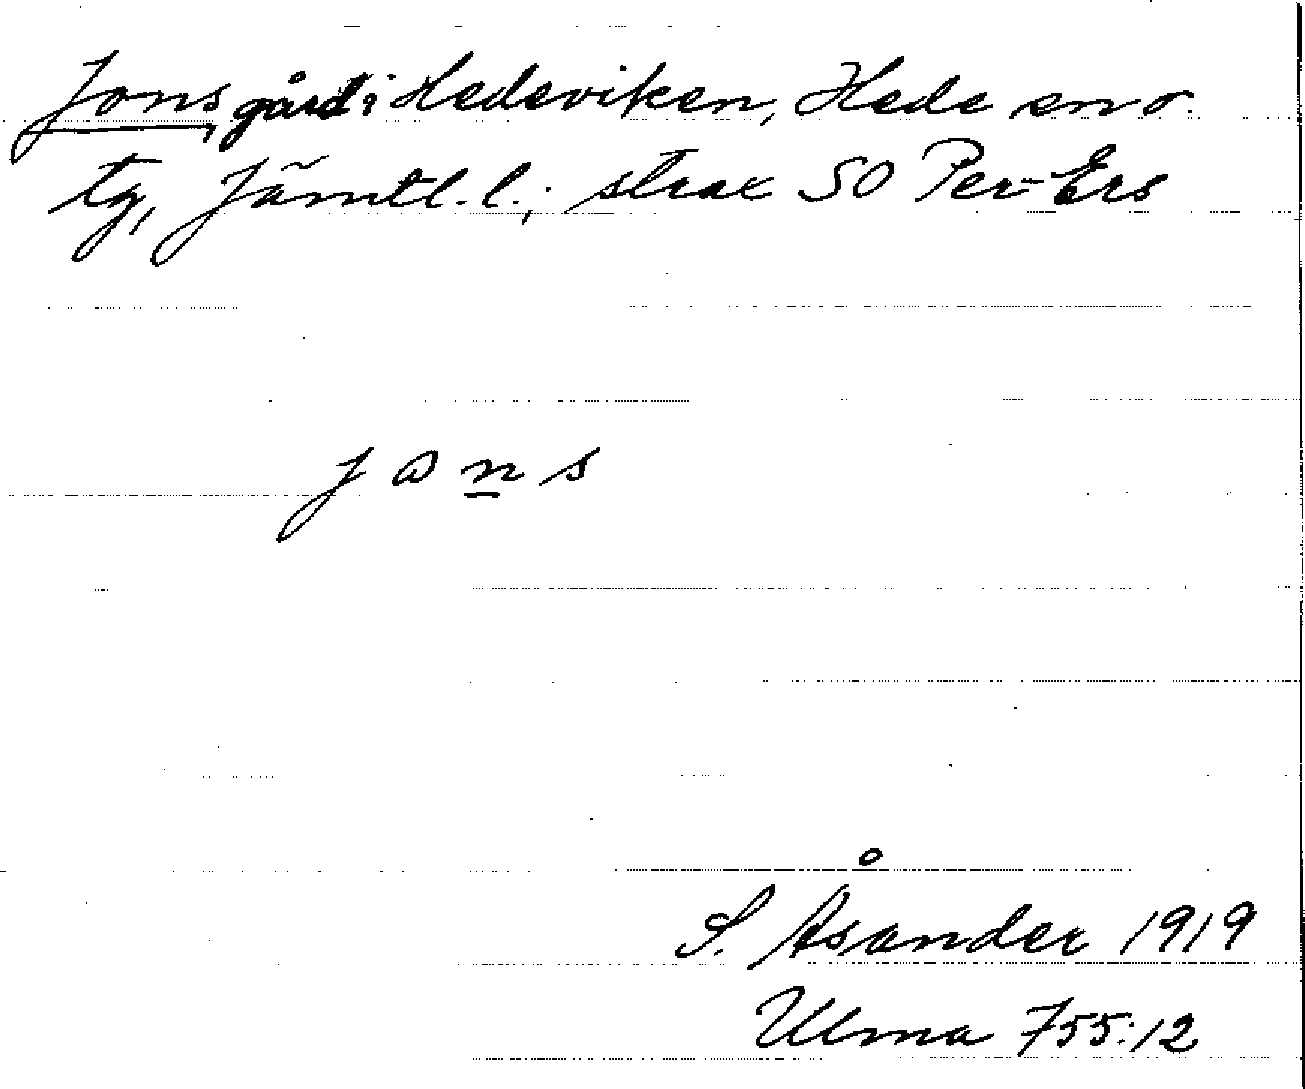 Jons, gård i Hedeviken, Hede sn o.
tg, Jämtl. l.; strax SO Per-Ers
jons
S. Åsander 1919
Ulma 755:12